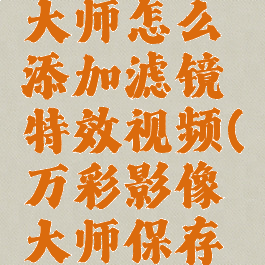 大师怎么
添加滤镜
特效视频(
万彩影像
大师保存